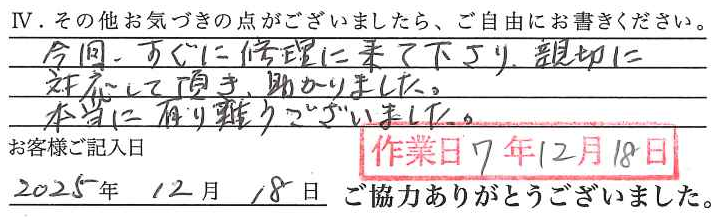 Ⅳ．その他お気づきの点がございましたら、ご自由にお書きください。
今回、すぐに修理に来て下さり、親切に
対応して頂き、助かりました。
本当に有り難うございました。
お客様ご記入日
作業日 7年12月18日
2025年 12月 18日 ご協力ありがとうございました。